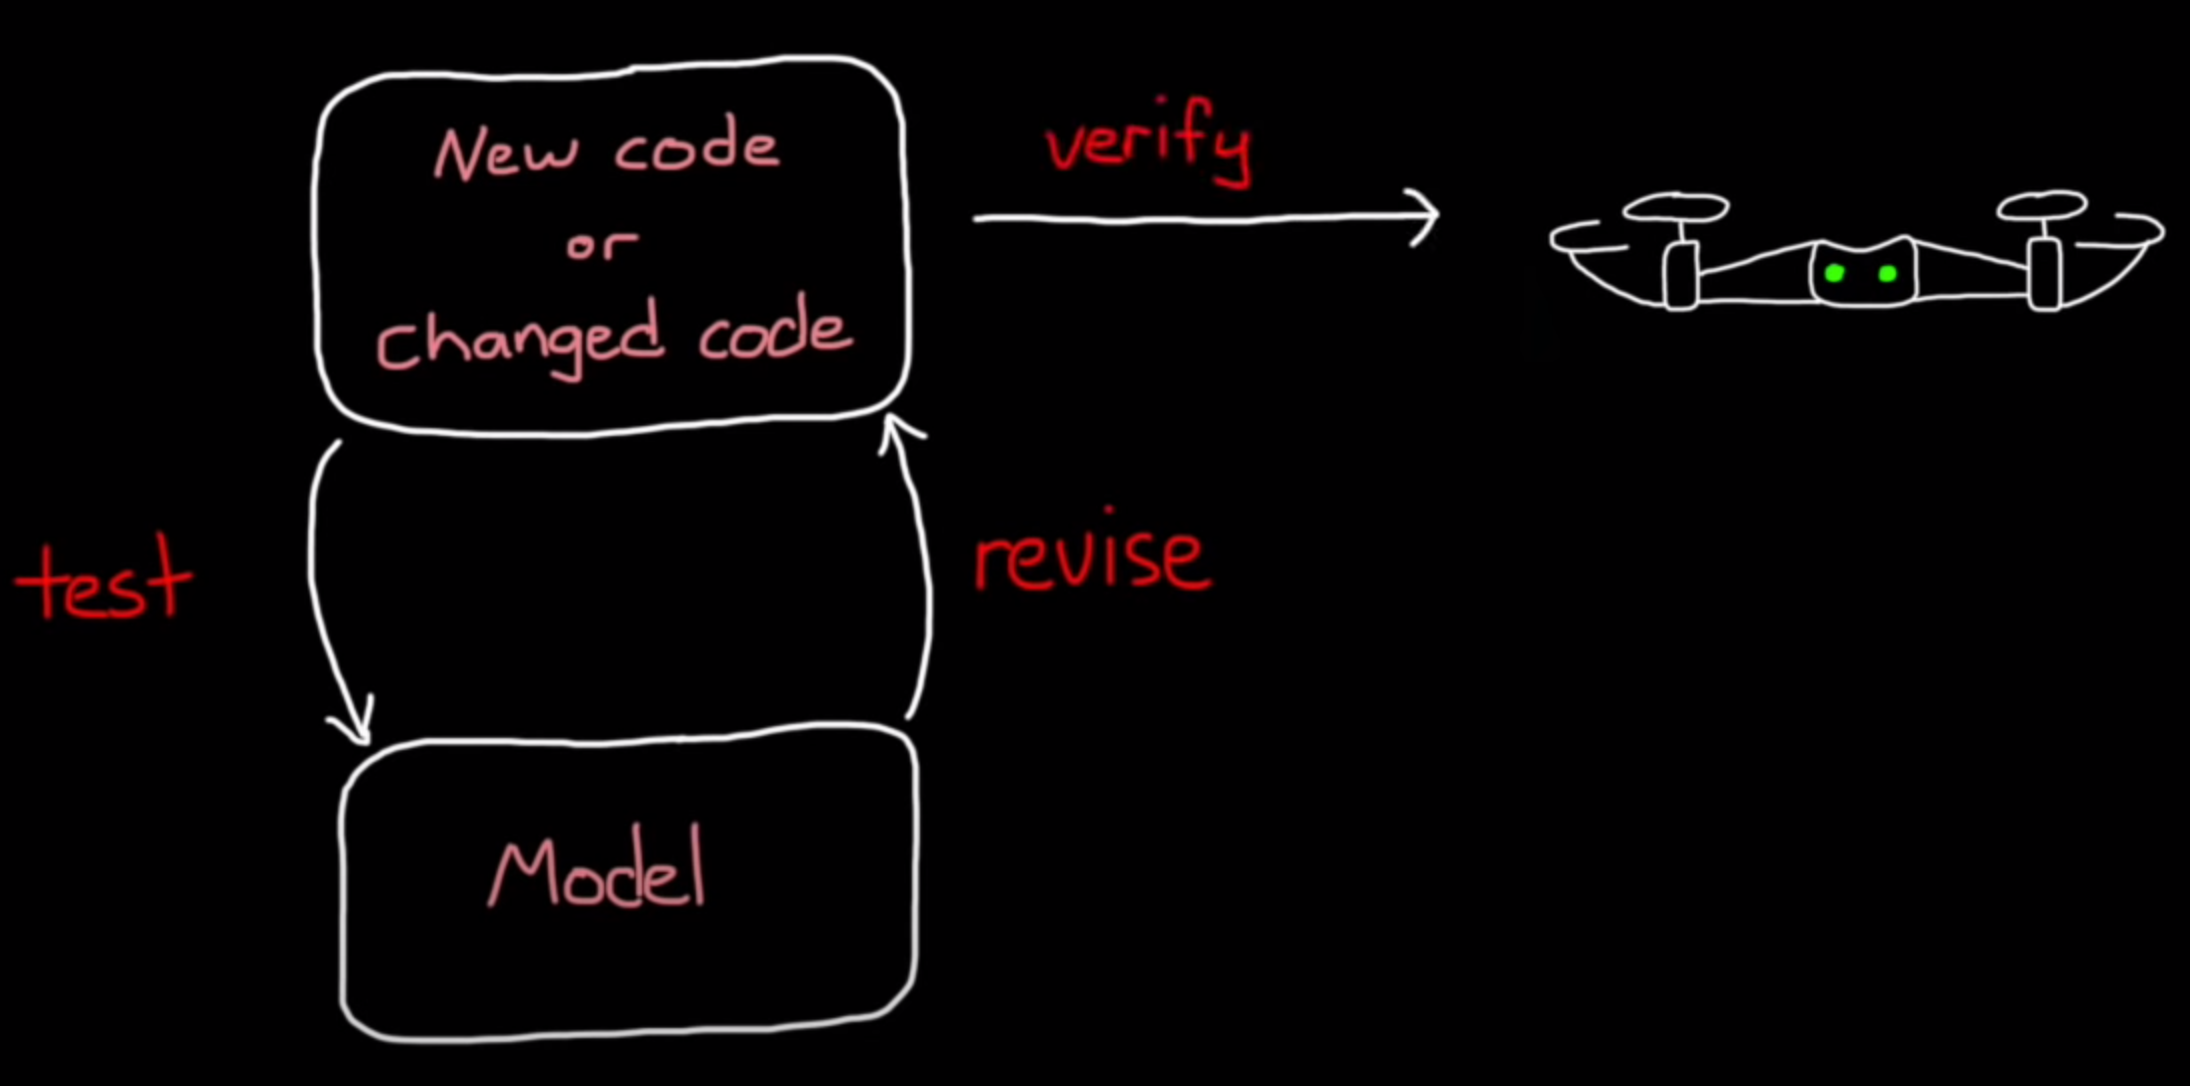 New code
or
changed code
verify
test
revise
Model